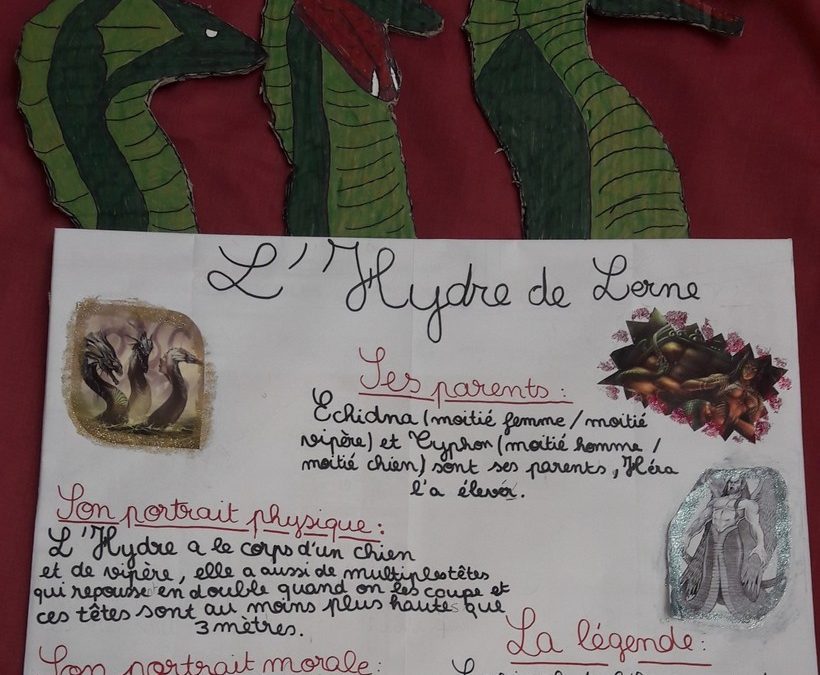 L'Hydre de Lerne
Ses parents :
Echidna (moitié femme / moitié
vipère) et Typhon (moitié homme /
moitié chien) sont ses parents, Héra
l'a élevér.
Son portrait physique :
L'Hydre a le corps d'un chien
et de vipère, elle a aussi de multiples têtes
qui repousse en double quand on les coupe et
ces têtes sont au moins plus hautes que
3 mètres.
La légende :
Son portrait morale :